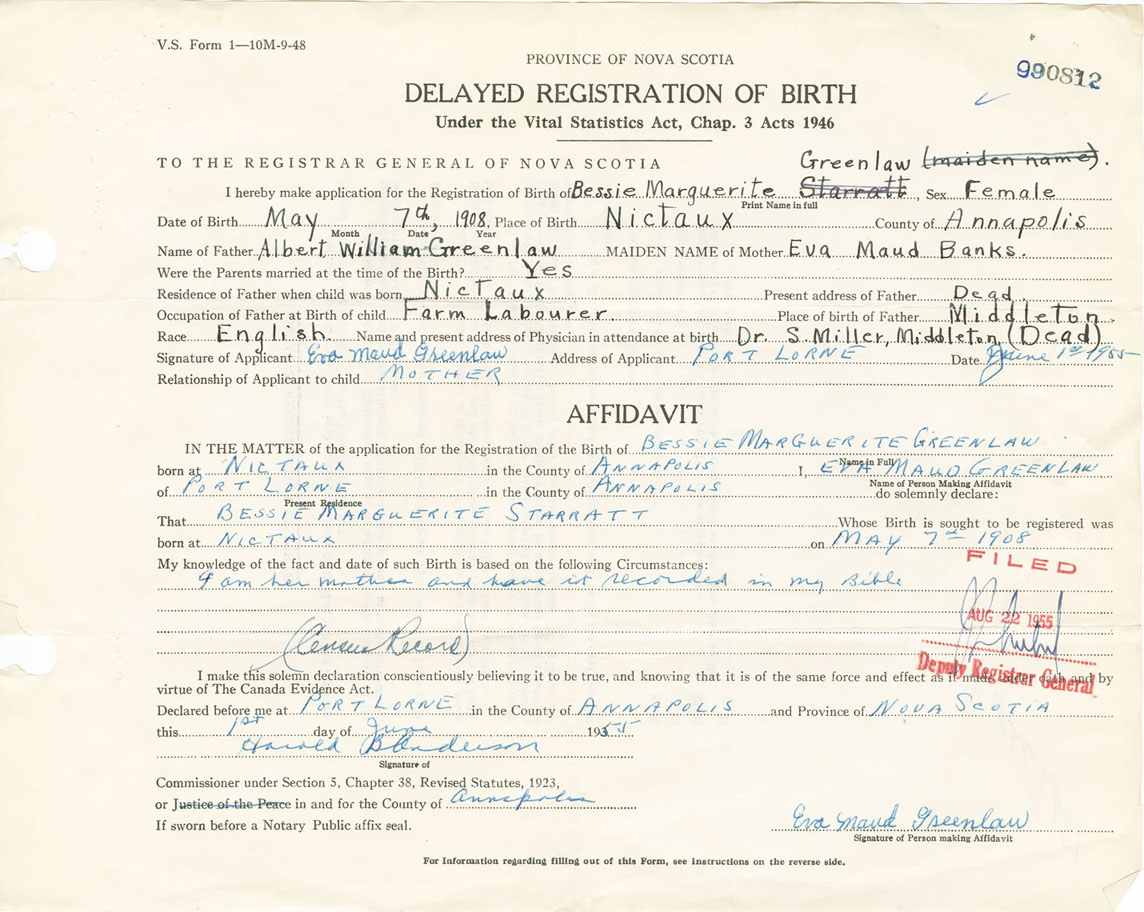 V.S. Form 1—10M-9-48
PROVINCE OF NOVA SCOTIA
990812
DELAYED REGISTRATION OF BIRTH
Under the Vital Statistics Act, Chap. 3 Acts 1946
TO THE REGISTRAR GENERAL OF NOVA SCOTIA Greenlaw (maiden name).
I hereby make application for the Registration of Birth of Bessie Marguerite Starratt, Sex Female
Print Name in full
Date of Birth May 7th, 1908, Place of Birth Nictaux County of Annapolis
Month Date Year
Name of Father Albert William Greenlaw MAIDEN NAME of Mother Eva Maud Banks.
Were the Parents married at the time of the Birth? Yes
Residence of Father when child was born Nictaux Present address of Father Dead
Occupation of Father at Birth of child Farm Labourer Place of birth of Father Middleton
Race English. Name and present address of Physician in attendance at birth Dr. S. Miller, Middleton, (Dead)
Signature of Applicant Eva Maud Greenlaw Address of Applicant PORT LORNE Date June 1st 1955
Relationship of Applicant to child MOTHER
AFFIDAVIT
IN THE MATTER of the application for the Registration of the Birth of BESSIE MARGUERITE GREENLAW
Name in Full
born at NICTAUX in the County of ANNAPOLIS I, EVA MAUD GREENLAW
Name of Person Making Affidavit
of PORT LORNE in the County of ANNAPOLIS do solemnly declare:
Present Residence
That BESSIE MARGUERITE STARRATT Whose Birth is sought to be registered was
born at NICTAUX on MAY 7th 1908
My knowledge of the fact and date of such Birth is based on the following Circumstances:
FILED
I am her mother and have it recorded in my Bible
AUG 22 1955
(Census Record)
Deputy Registrar General
I make this solemn declaration conscientiously believing it to be true, and knowing that it is of the same force and effect as if made under oath and by
virtue of The Canada Evidence Act.
Declared before me at PORT LORNE in the County of ANNAPOLIS and Province of NOVA SCOTIA
this 1st day of June 1955
Harold B Anderson
Signature of
Commissioner under Section 5, Chapter 38, Revised Statutes, 1923,
or Justice of the Peace in and for the County of Annapolis
If sworn before a Notary Public affix seal.
Eva Maud Greenlaw
Signature of Person making Affidavit
For Information regarding filling out of this Form, see instructions on the reverse side.